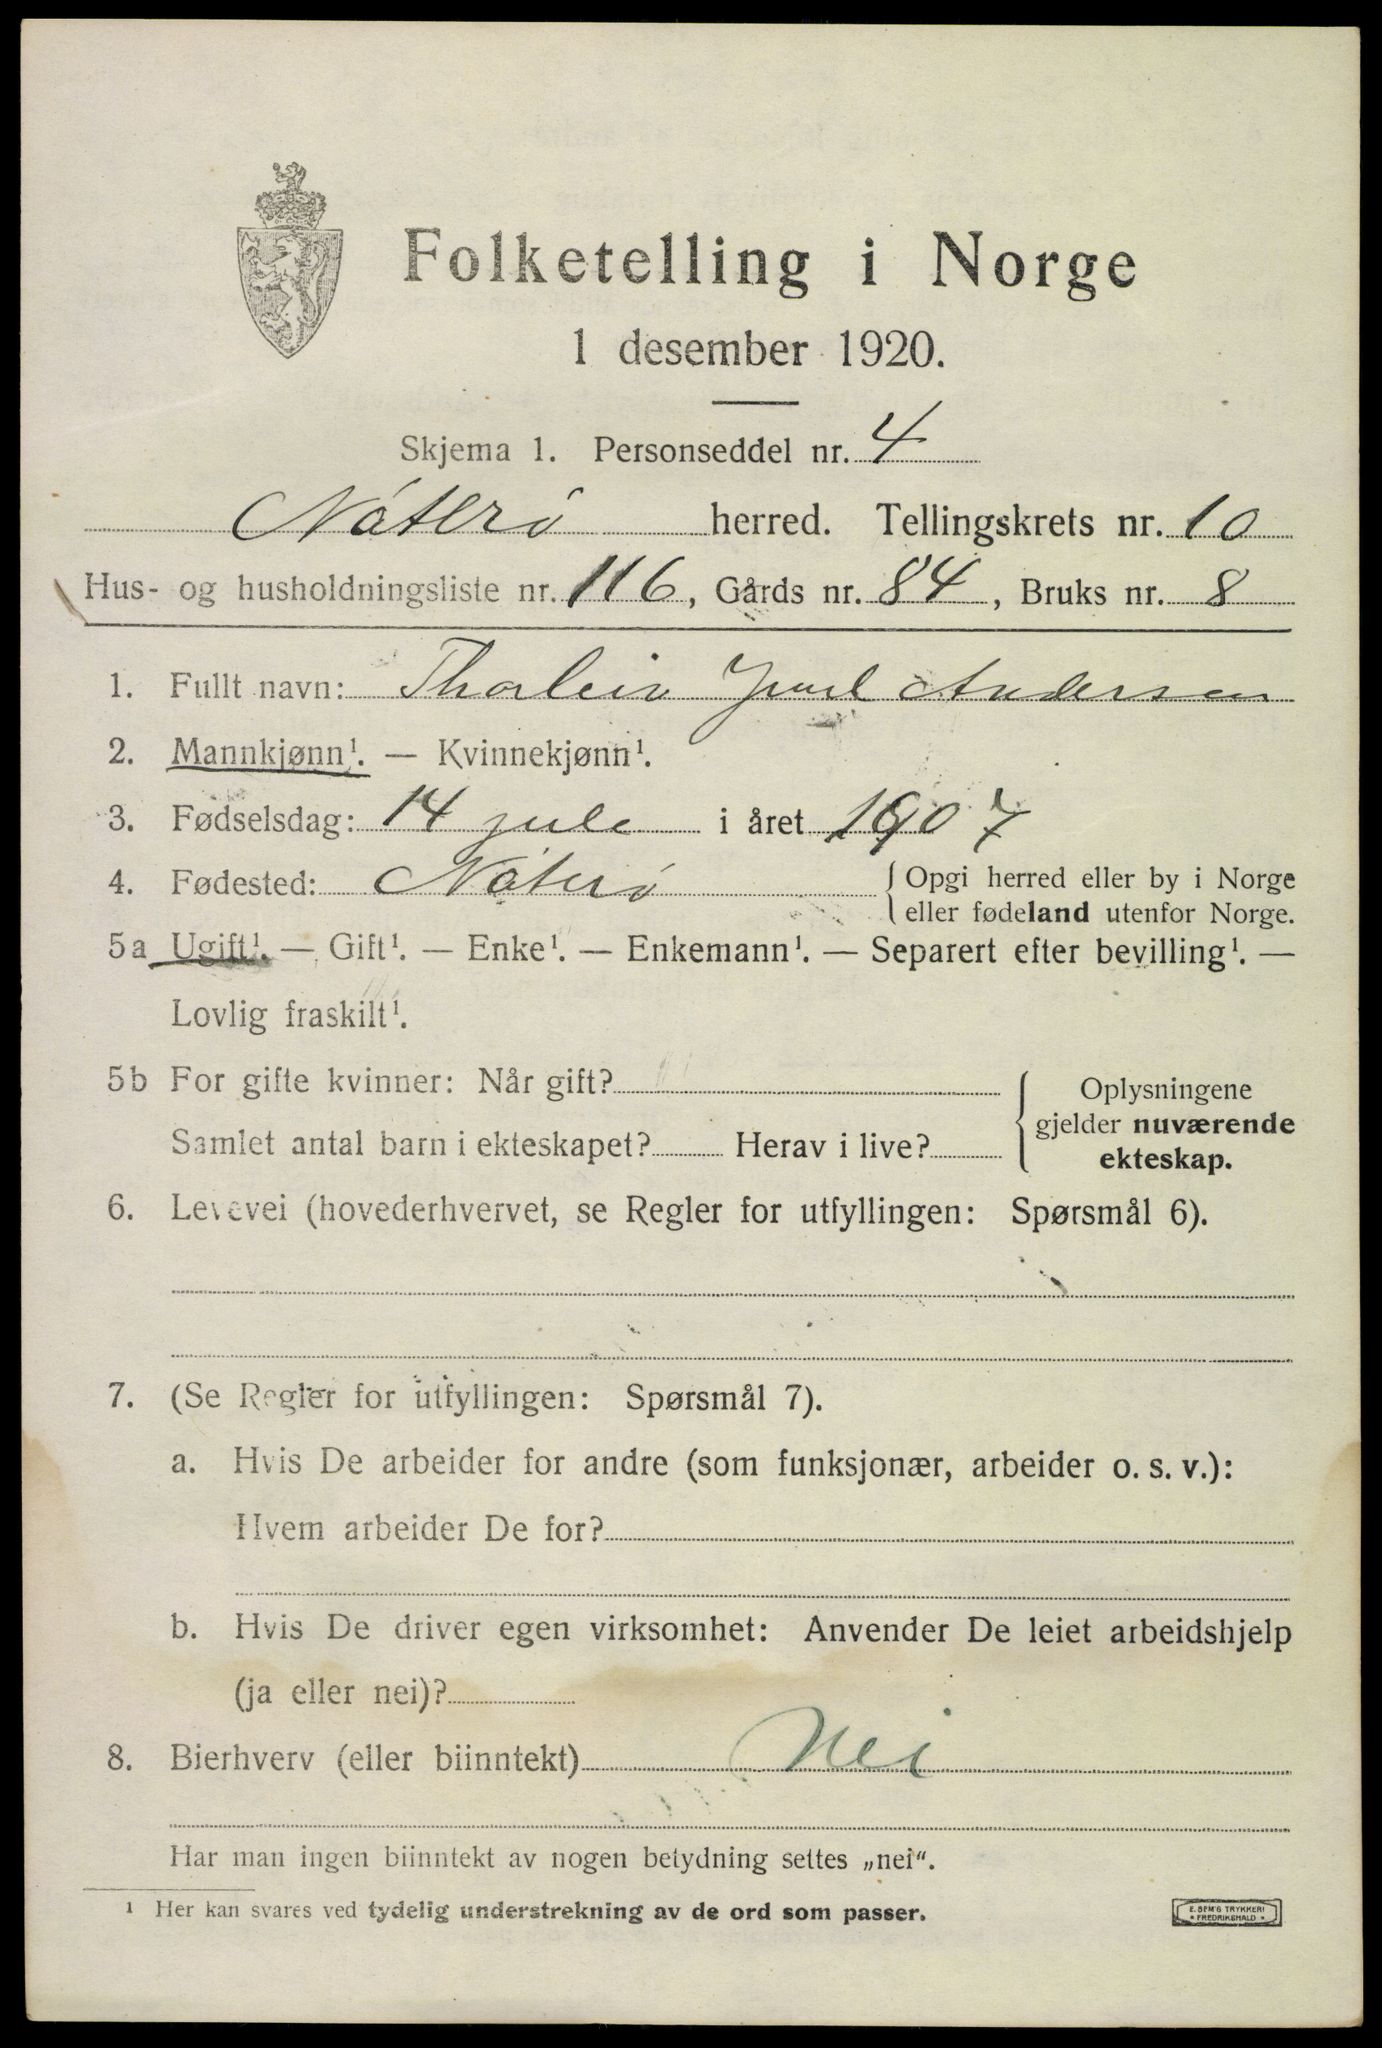 Folketelling i Norge
1 desember 1920.
Skjema 1. Personseddel nr. 4
Nøterø herred. Tellingskrets nr. 10
Hus- og husholdningsliste nr. 116, Gårds nr. 84, Bruks nr. 8
1. Fullt navn: Thorleiv Andersen
2. Mannkjønn¹. — Kvinnekjønn¹.
3. Fødselsdag: 14 jule i året 1907
4. Fødested: Nøterø { Opgi herred eller by i Norge
eller fødeland utenfor Norge.
5a Ugift¹. — Gift¹. — Enke¹. — Enkemann¹. — Separert efter bevilling¹. —
Lovlig fraskilt¹.
5b For gifte kvinner: Når gift?
Samlet antal barn i ekteskapet? Herav i live?
Oplysningene
gjelder nuværende
ekteskap.
6. Levevei (hovederhvervet, se Regler for utfyllingen: Spørsmål 6).
7. (Se Regler for utfyllingen: Spørsmål 7).
a. Hvis De arbeider for andre (som funksjonær, arbeider o. s. v.):
Hvem arbeider De for?
b. Hvis De driver egen virksomhet: Anvender De leiet arbeidshjelp
(ja eller nei)?
8. Bierhverv (eller biinntekt) Nei
Har man ingen biinntekt av nogen betydning settes „nei“.
¹ Her kan svares ved tydelig understrekning av de ord som passer.
E. SEM'S TRYKKERI
* FREDRIKSHALD *